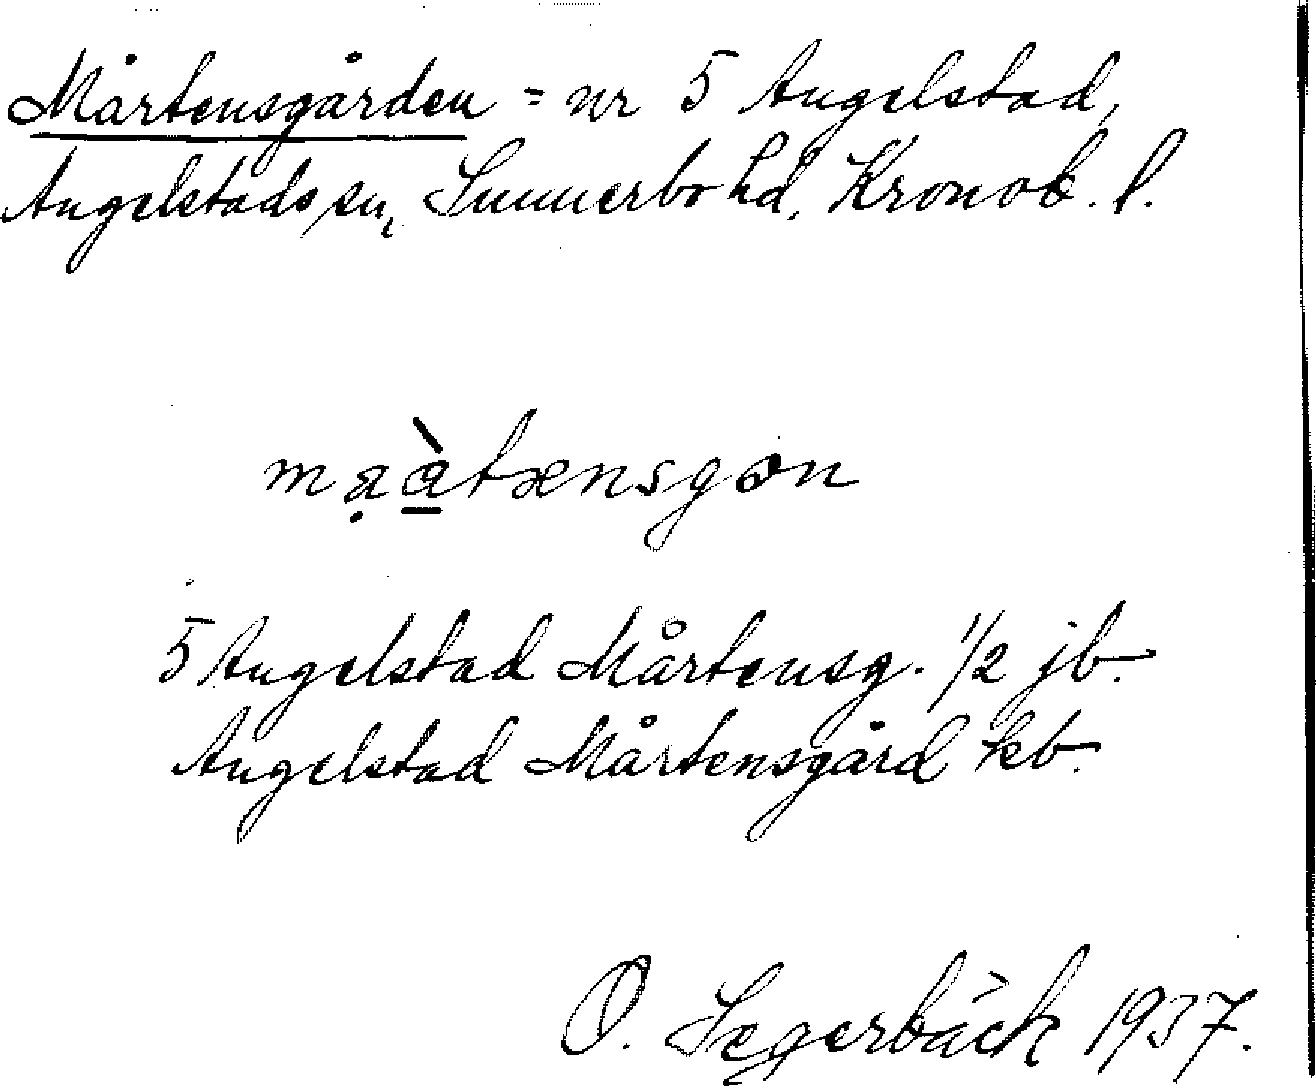 Mårtensgården = nr 5 Angelstad,
Angelstads sn, Sunnerbo hd, Kronob. l.
5 Angelstad Mårtensg. 1/2 jb.
Angelstad Mårtensgård kb.
O. Segerbäck 1937.